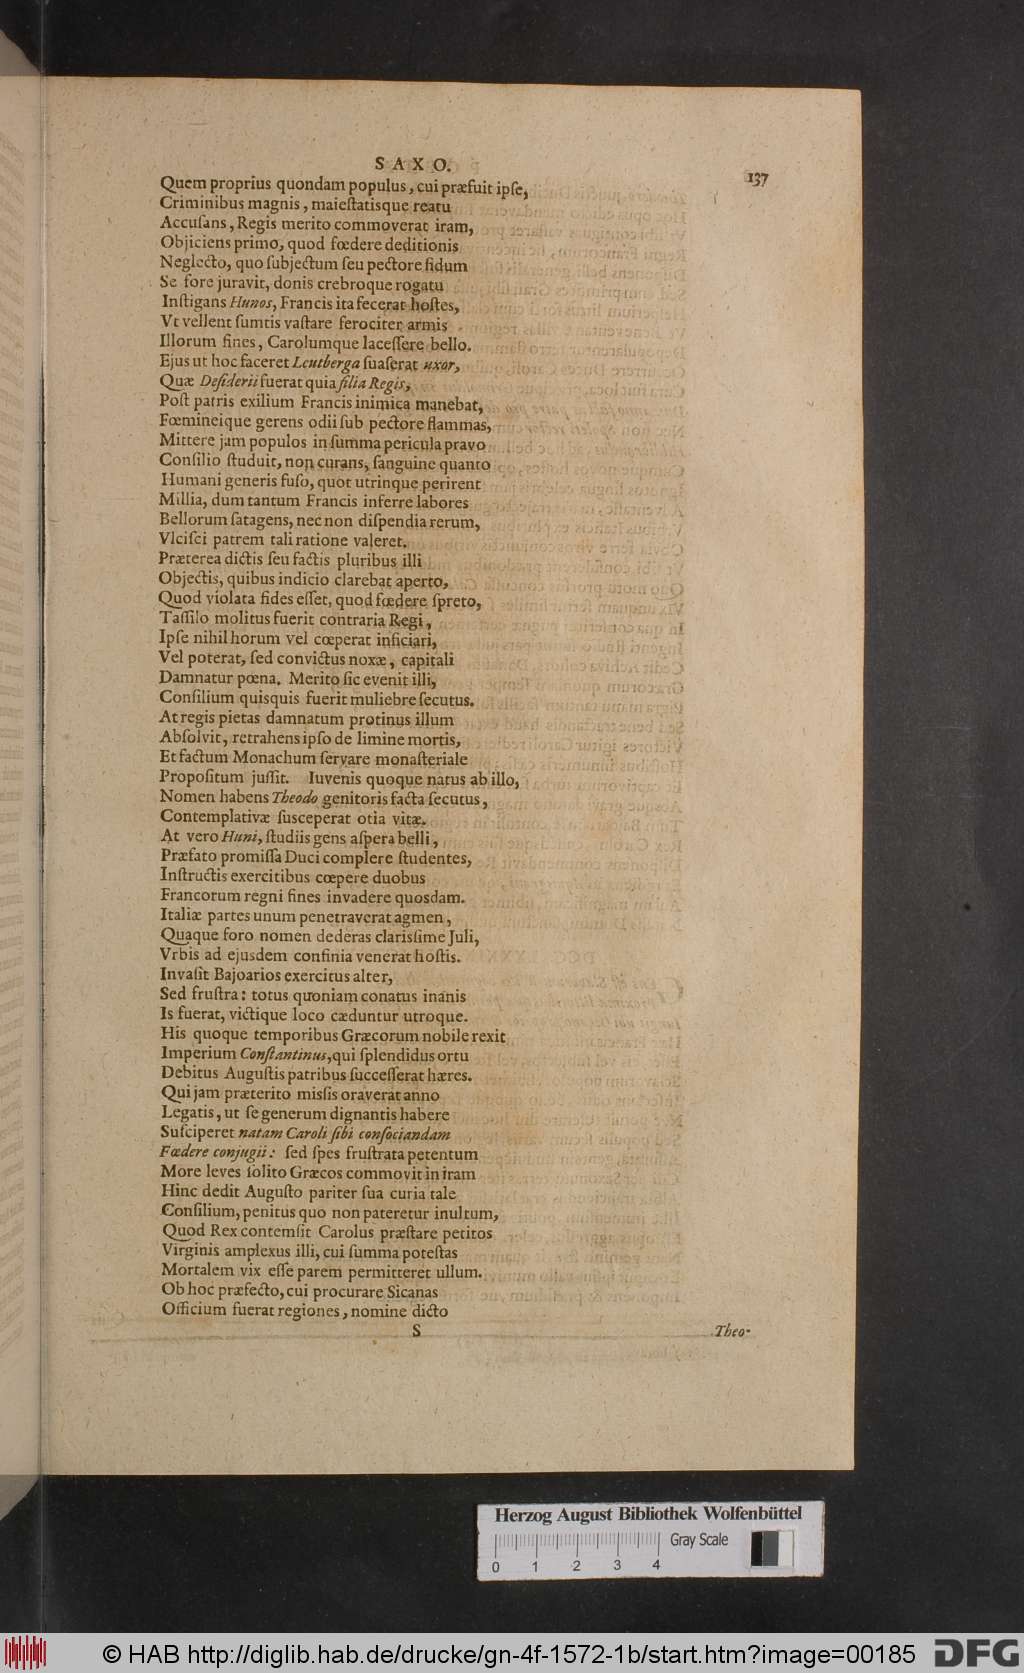 SAXO.
137
Quem proprius quondam populus, cui præfuit ipſe,
Criminibus magnis, maieſtatisque reatu
Accuſans, Regis merito commoverat iram,
Objiciens primo, quod fœdere deditionis
Neglecto, quo ſubjectum ſeu pectore fidum
Se fore juravit, donis crebroque rogatu
Inſtigans Hunos, Francis ita fecerat hoſtes,
Vt vellent ſumtis vaſtare ferociter armis
Illorum fines, Carolumque laceſſere bello.
Ejus ut hoc faceret Leutberga ſuaſerat uxor,
Quæ Deſiderii fuerat quia filia Regis,
Poſt patris exilium Francis inimica manebat,
Fœmineique gerens odii ſub pectore flammas,
Mittere jam populos in ſumma pericula pravo
Conſilio ſtuduit, non curans, ſanguine quanto
Humani generis fuſo, quot utrinque perirent
Millia, dum tantum Francis inferre labores
Bellorum ſatagens, nec non diſpendia rerum,
Vlciſci patrem tali ratione valeret.
Præterea dictis ſeu factis pluribus illi
Objectis, quibus indicio clarebat aperto,
Quod violata fides eſſet, quod fœdere ſpreto,
Taſſilo molitus fuerit contraria Regi,
Ipſe nihil horum vel cœperat inficiari,
Vel poterat, ſed convictus noxæ, capitali
Damnatur pœna. Merito ſic evenit illi,
Conſilium quisquis fuerit muliebre ſecutus.
At regis pietas damnatum protinus illum
Abſolvit, retrahens ipſo de limine mortis,
Et factum Monachum ſervare monaſteriale
Propoſitum juſſit. Iuvenis quoque natus ab illo,
Nomen habens Theodo genitoris facta ſecutus,
Contemplativæ ſusceperat otia vitæ.
At vero Huni, ſtudiis gens aſpera belli,
Præfato promiſſa Duci complere ſtudentes,
Inſtructis exercitibus cœpere duobus
Francorum regni fines invadere quosdam.
Italiæ partes unum penetraverat agmen,
Quaque foro nomen dederas clarisſime Juli,
Vrbis ad ejusdem confinia venerat hoſtis.
Invaſit Bajoarios exercitus alter,
Sed fruſtra: totus quoniam conatus inanis
Is fuerat, victique loco cæduntur utroque.
His quoque temporibus Græcorum nobile rexit
Imperium Conſtantinus, qui ſplendidus ortu
Debitus Auguſtis patribus ſucceſſerat hæres.
Qui jam præterito misſis oraverat anno
Legatis, ut ſe generum dignantis habere
Suſciperet natam Caroli ſibi conſociandam
Fœdere conjugii: ſed ſpes fruſtrata petentum
More leves ſolito Græcos commovit in iram
Hinc dedit Auguſto pariter ſua curia tale
Conſilium, penitus quo non pateretur inultum,
Quod Rex contemſit Carolus præſtare petitos
Virginis amplexus illi, cui ſumma poteſtas
Mortalem vix eſſe parem permitteret ullum.
Ob hoc præfecto, cui procurare Sicanas
Officium fuerat regiones, nomine dicto
S
Theo-
Herzog August Bibliothek Wolfenbüttel
Gray Scale
0 1 2 3 4
© HAB http://diglib.hab.de/drucke/gn-4f-1572-1b/start.htm?image=00185
DFG